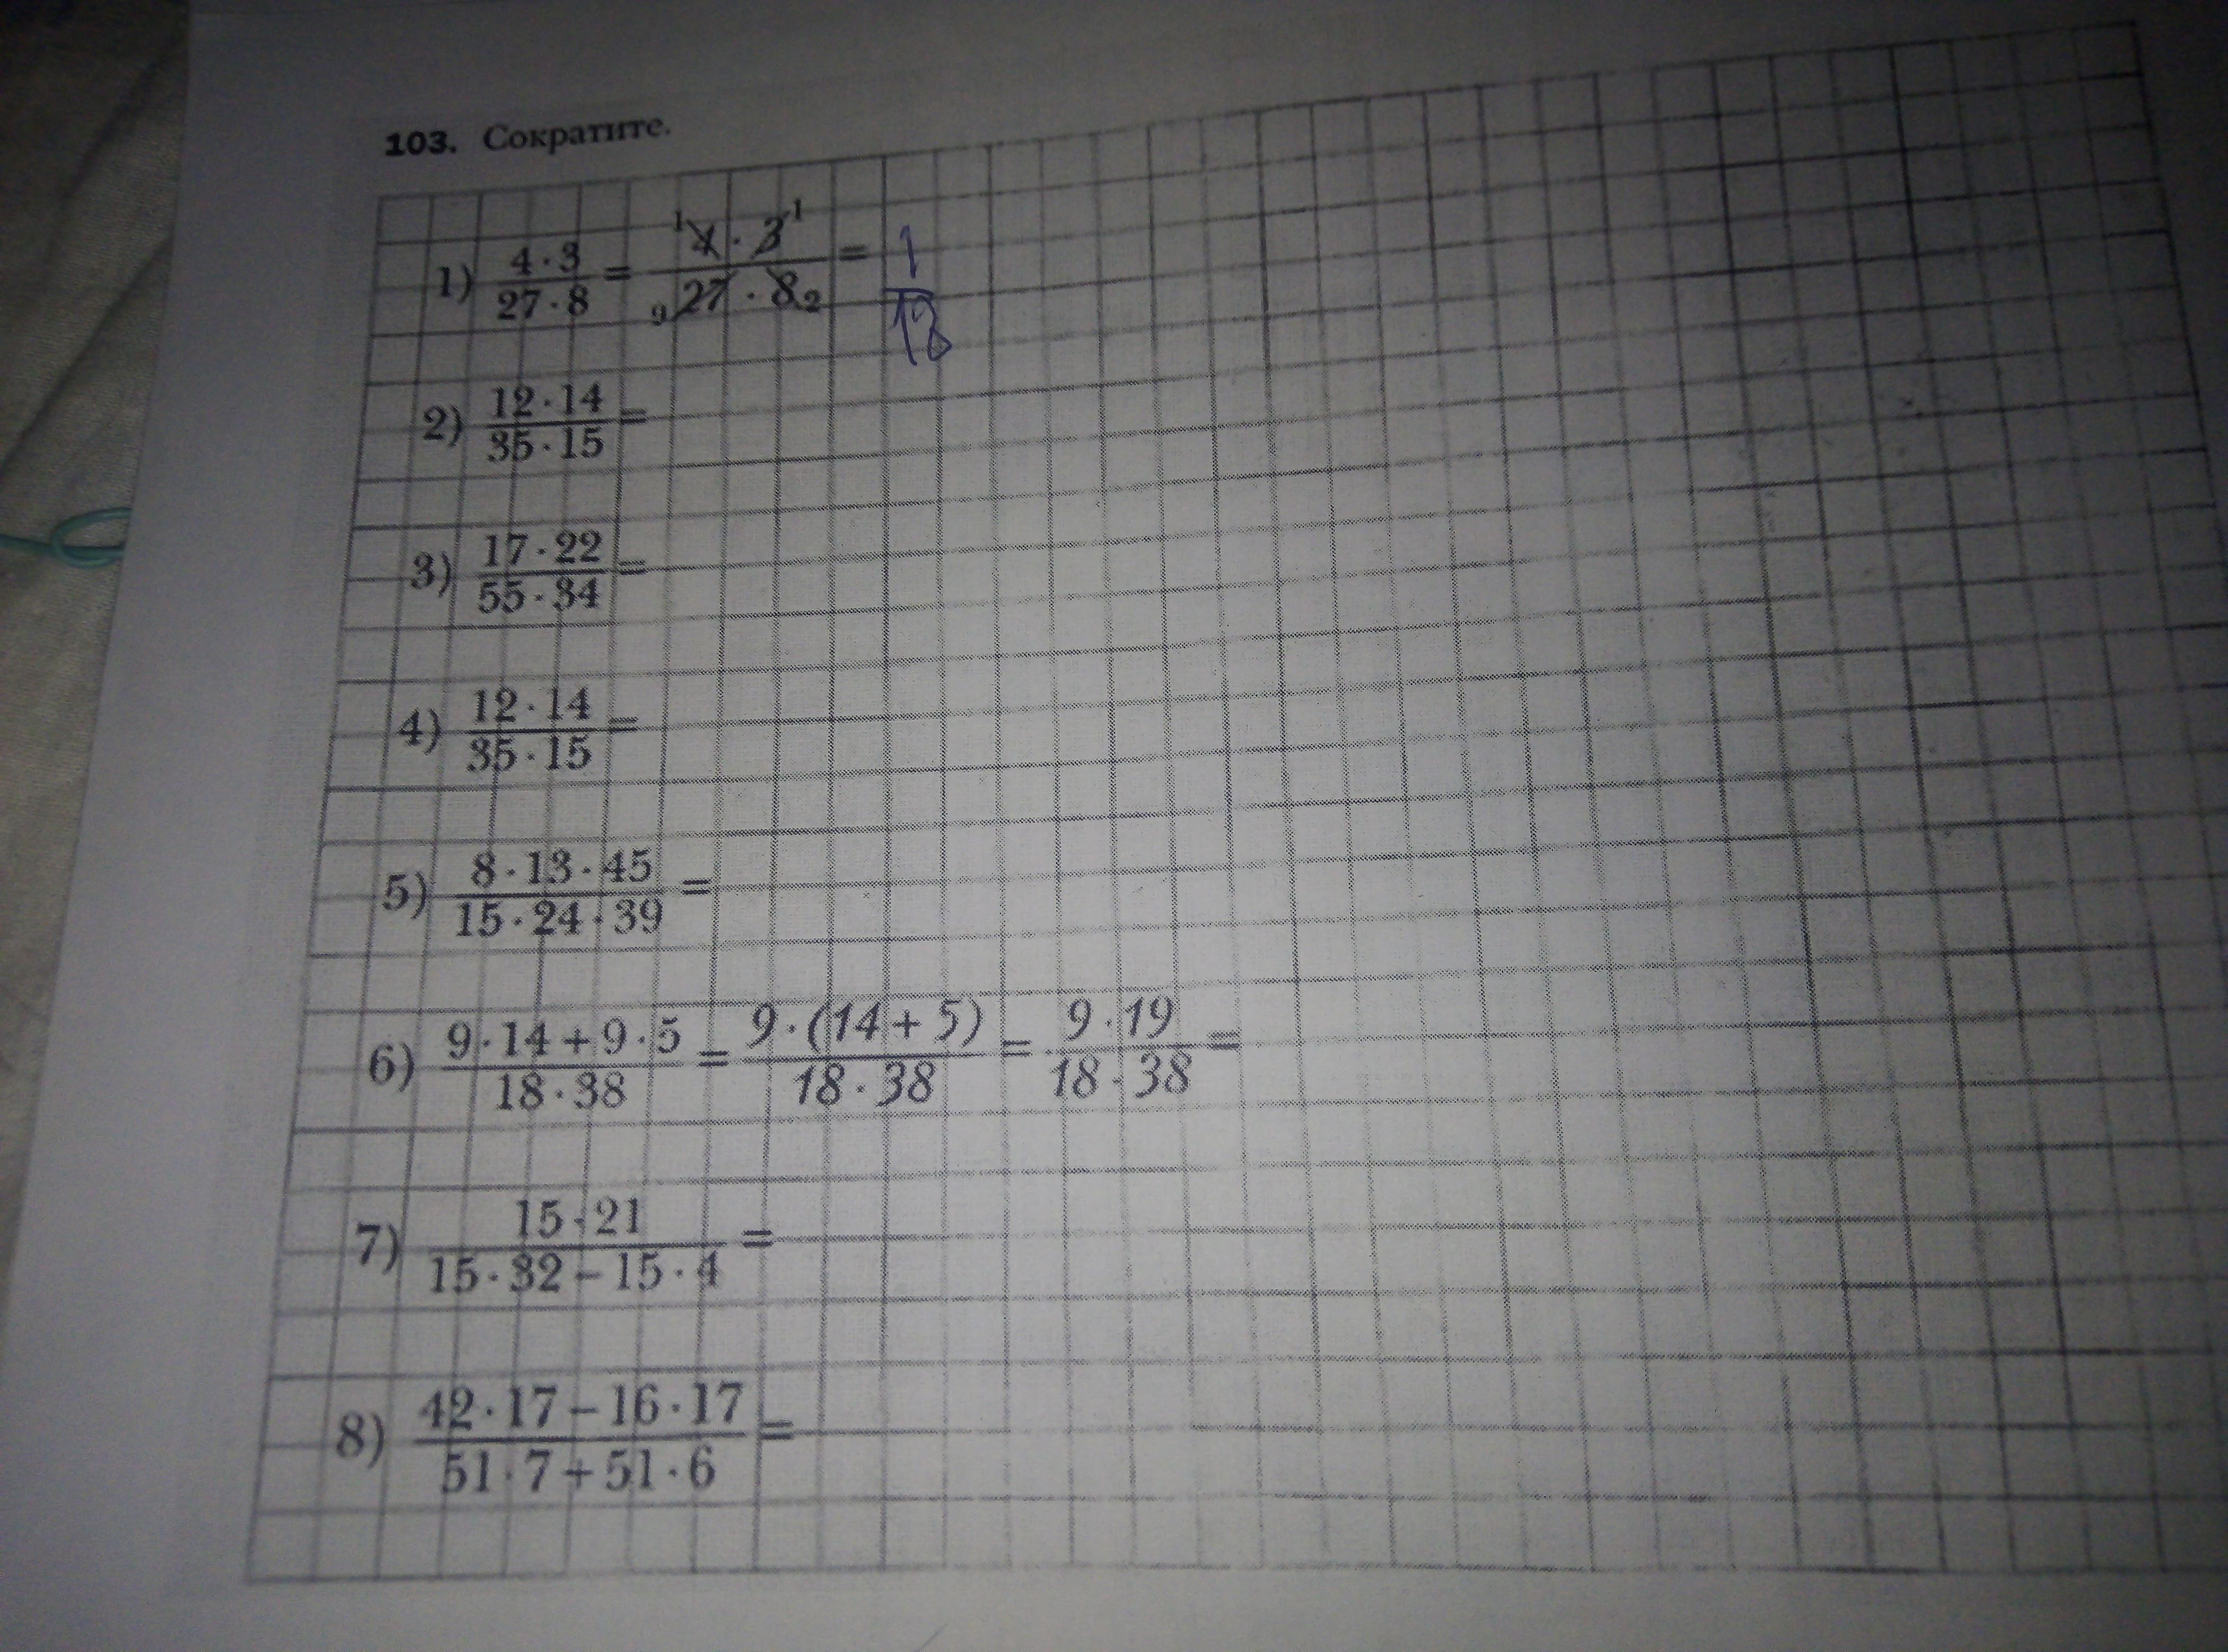 103. Сократите.
1) 4 · 3 / 27 · 8 = ¹4 · 3¹ / ₉27 · 8₂ = 1 / 18
2) 12 · 14 / 35 · 15 =
3) 17 · 22 / 55 · 34 =
4) 12 · 14 / 35 · 15 =
5) 8 · 13 · 45 / 15 · 24 · 39 =
6) 9 · 14 + 9 · 5 / 18 · 38 = 9 · (14 + 5) / 18 · 38 = 9 · 19 / 18 · 38 =
7) 15 · 21 / 15 · 32 − 15 · 4 =
8) 42 · 17 − 16 · 17 / 51 · 7 + 51 · 6 =